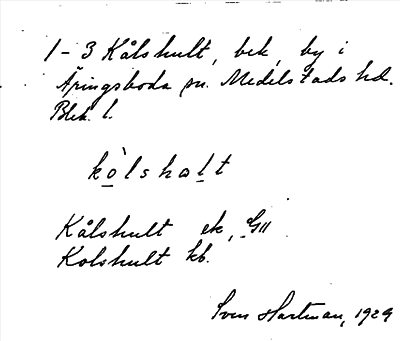 1-3 Kålshult, bek, by i
Äringsboda sn. Medelstads hd.
Blek. l.
kòlshalt
Kålshult ek, GII
Kolshult kb.
Sven Hartman, 1929